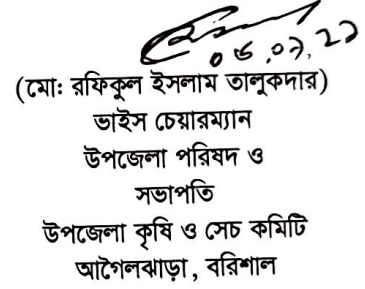 ০৬.০২.২২
(মোঃ রফিকুল ইসলাম তালুকদার)
ভাইস চেয়ারম্যান
উপজেলা পরিষদ ও
সভাপতি
উপজেলা কৃষি ও সেচ কমিটি
আগৈলঝাড়া, বরিশাল